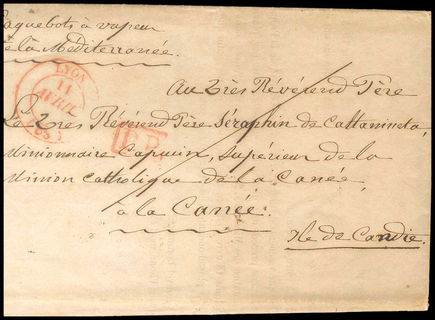 Paquebots à vapeur
de la Méditerranée.
LYON
11
AVRIL
Au Très Révérend Père
Le Très Révérend Père Séraphin de
Missionnaire Capucin, Supérieur de la
Mission Catholique de la Canée,
à la Canée.
Ile de Candie.
P.P.